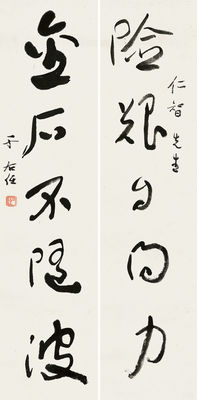 險艱自得力
仁智先生
金石不隨波
于右任